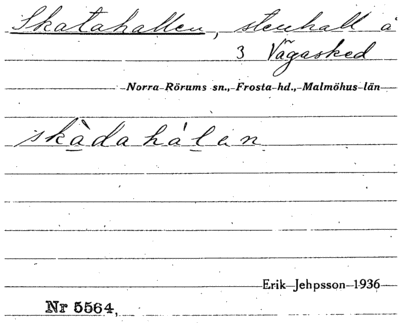 Skatahallen, stenhall å
3 Vägasked
Norra Rörums sn., Frosta hd., Malmöhus län
skàdahálan
Erik Jehpsson 1936
Nr 5564,